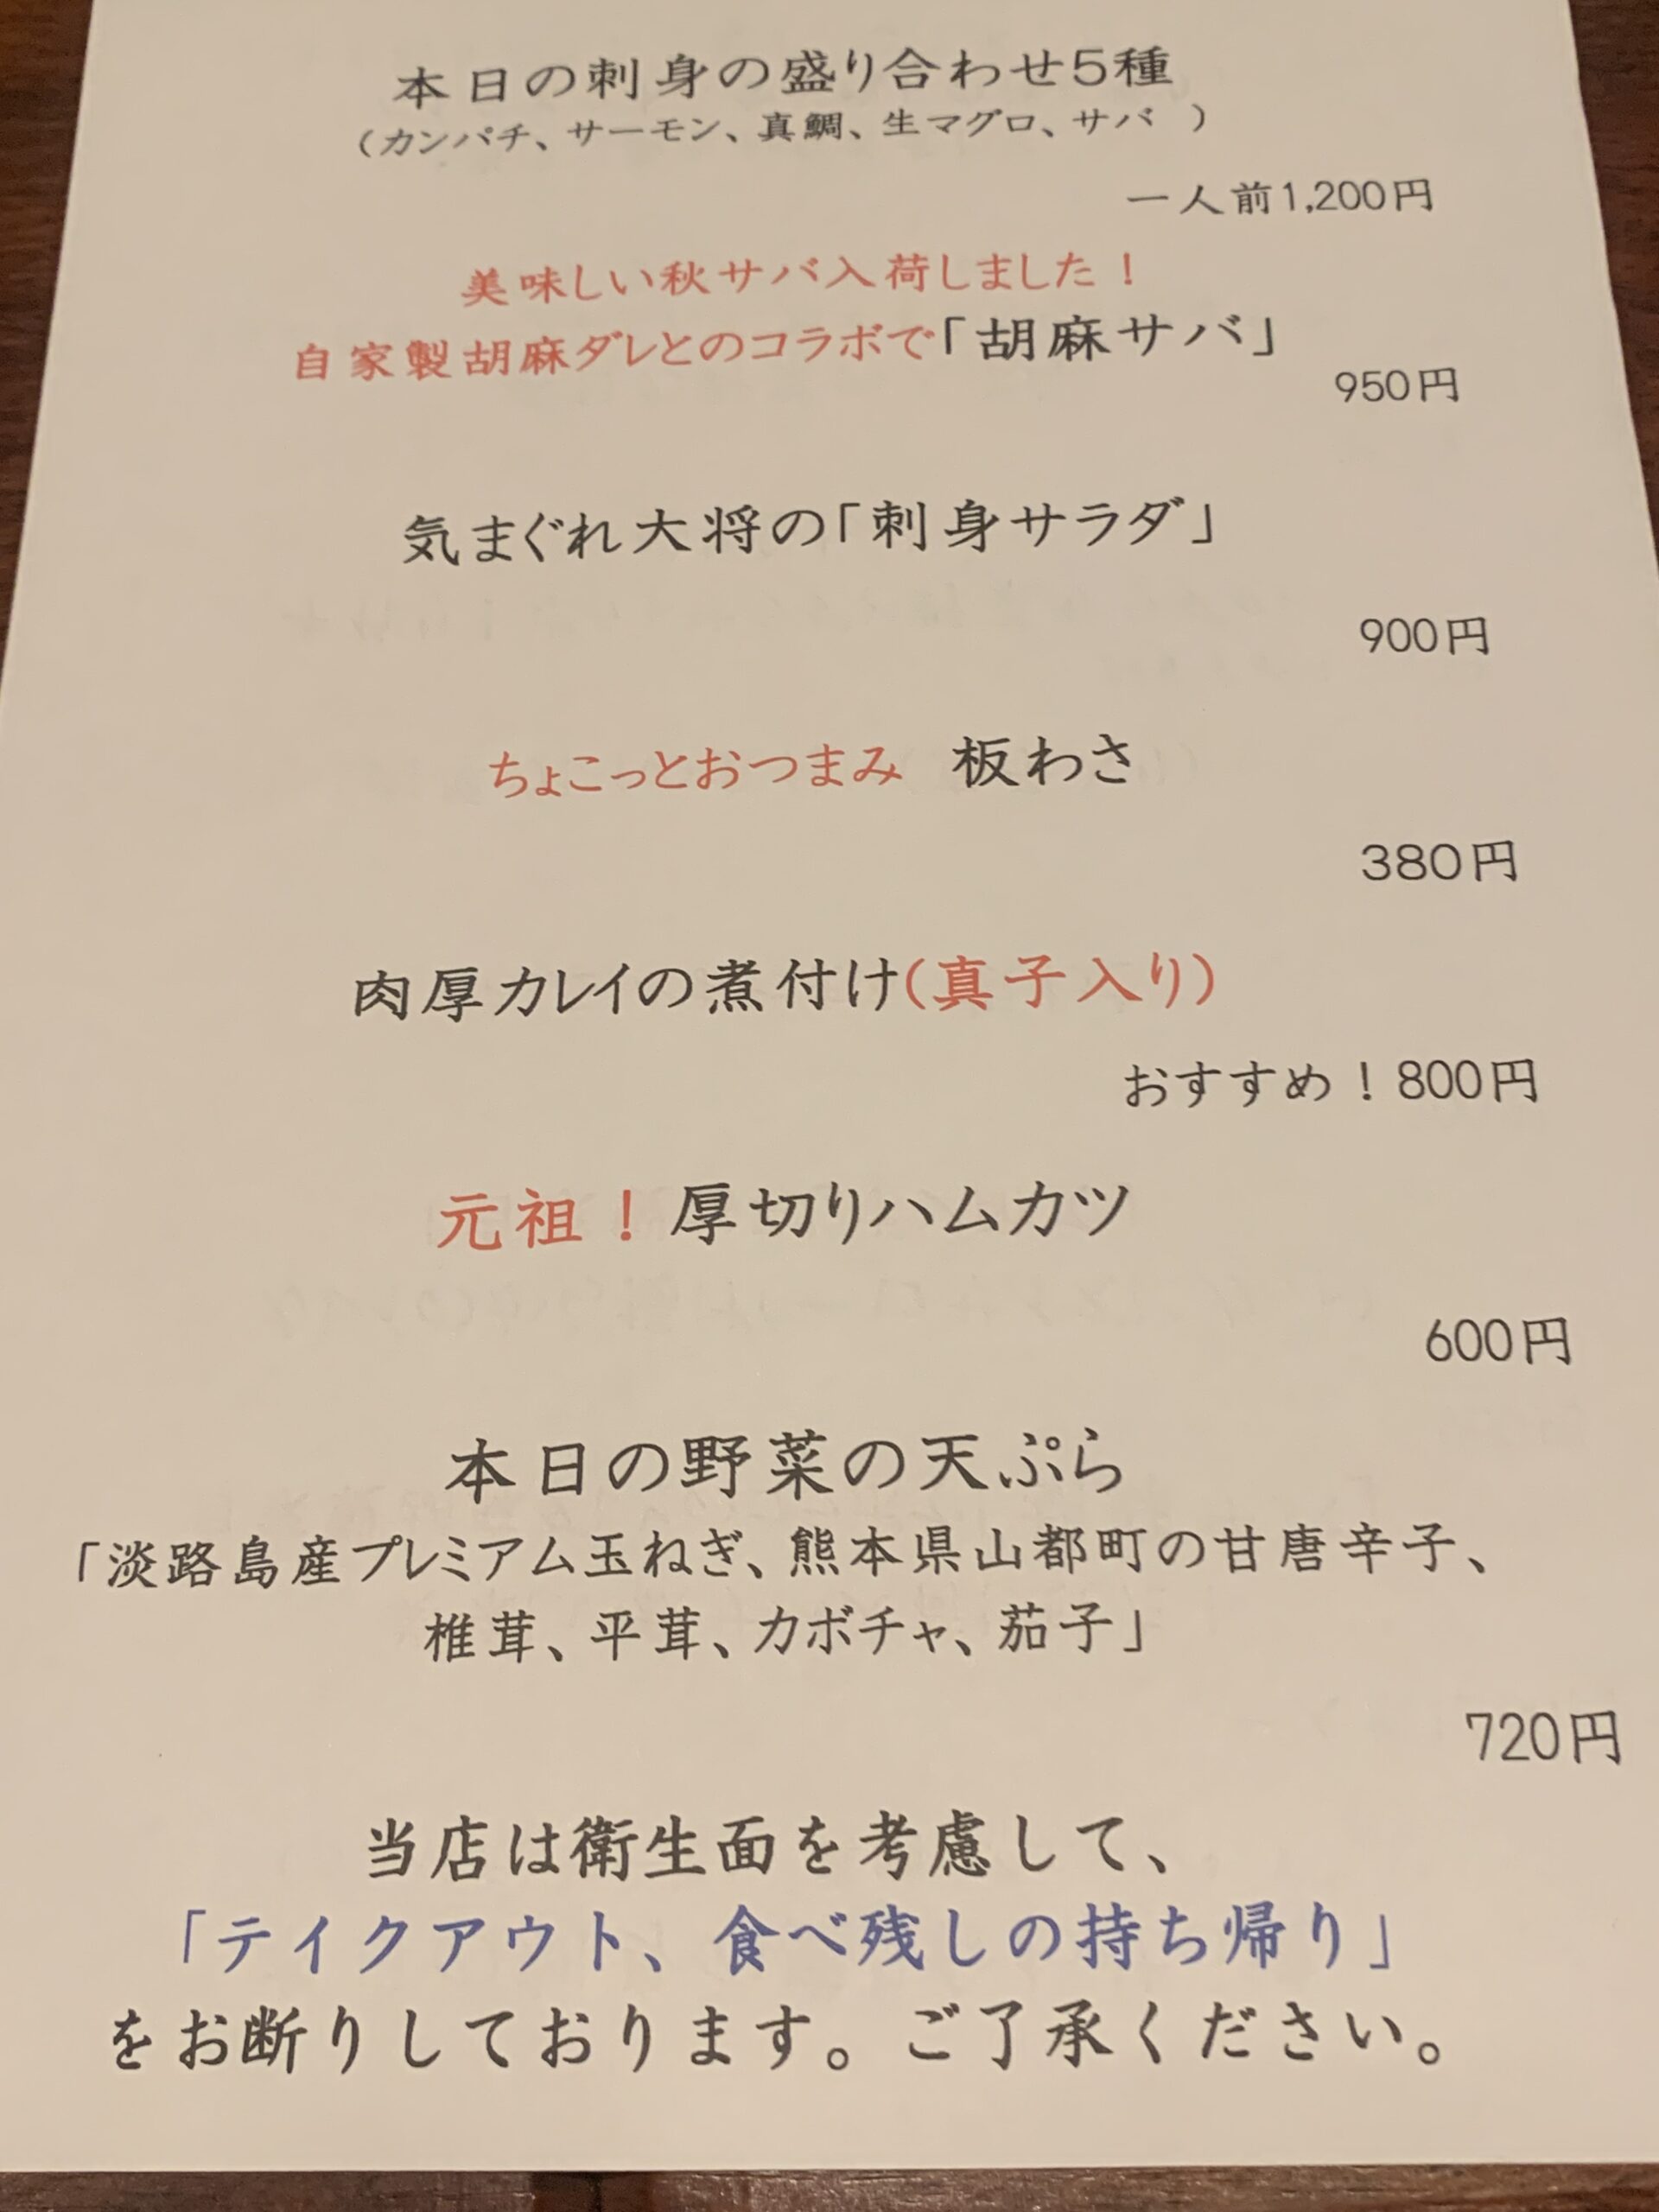 本日の刺身の盛り合わせ5種
（カンパチ、サーモン、真鯛、生マグロ、サバ　）
一人前1,200円
美味しい秋サバ入荷しました！
自家製胡麻ダレとのコラボで「胡麻サバ」
950円
気まぐれ大将の「刺身サラダ」
900円
ちょこっとおつまみ　板わさ
380円
肉厚カレイの煮付け（真子入り）
おすすめ！800円
元祖！厚切りハムカツ
600円
本日の野菜の天ぷら
「淡路島産プレミアム玉ねぎ、熊本県山都町の甘唐辛子、
椎茸、平茸、カボチャ、茄子」
720円
当店は衛生面を考慮して、
「テイクアウト、食べ残しの持ち帰り」
をお断りしております。ご了承ください。